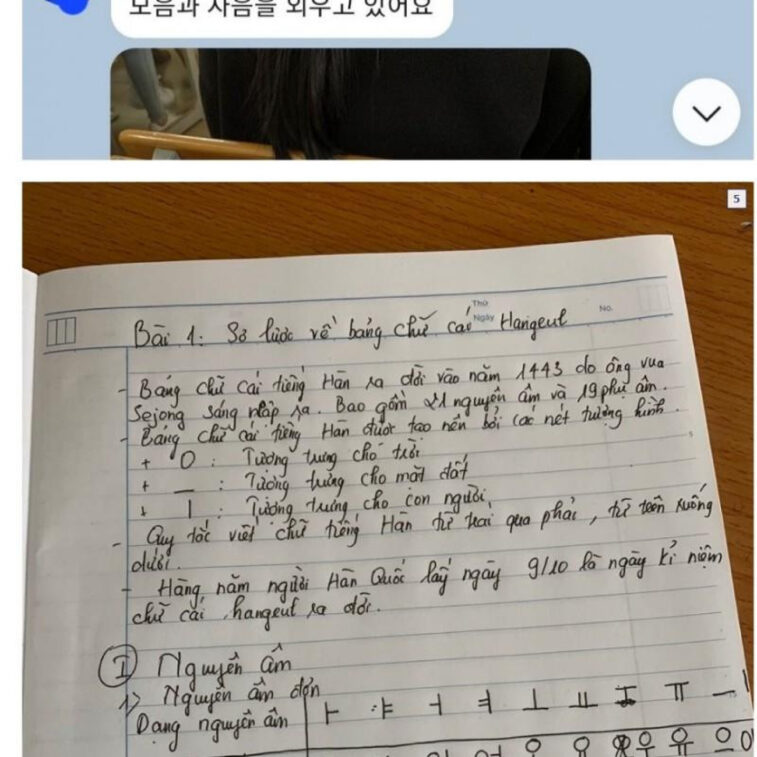 모음과 자음을 외우고 있어요
5
Thứ
Ngày
No.
Bài 1: Sơ lược về bảng chữ cái Hangeul
- Bảng chữ cái tiếng Hàn ra đời vào năm 1443 do ông vua
Sejong sáng lập ra. Bao gồm 21 nguyên âm và 19 phụ âm.
- Bảng chữ cái tiếng Hàn được tạo nên bởi các nét tượng hình.
+ O : Tượng trưng cho trời
+ __ : Tượng trưng cho mặt đất
+ | : Tượng trưng cho con người
- Quy tắc viết chữ tiếng Hàn từ trái qua phải, từ trên xuống
dưới.
- Hàng năm người Hàn Quốc lấy ngày 9/10 là ngày kỉ niệm
chữ cái hangeul ra đời.
I Nguyên âm
1) Nguyên âm đơn
Dạng nguyên âm ㅏ ㅑ ㅓ ㅕ ㅗ ㅛ ㅜ ㅠ ㅡ ㅣ
오 요 우 유 으 이